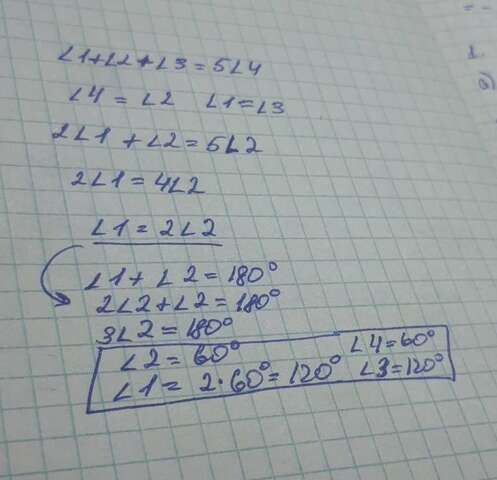 ∠1+∠2+∠3=5∠4
∠4=∠2 ∠1=∠3
2∠1+∠2=5∠2
2∠1=4∠2
∠1=2∠2
∠1+∠2=180°
2∠2+∠2=180°
3∠2=180°
∠2=60° ∠4=60°
∠1=2·60°=120° ∠3=120°
1.
а)